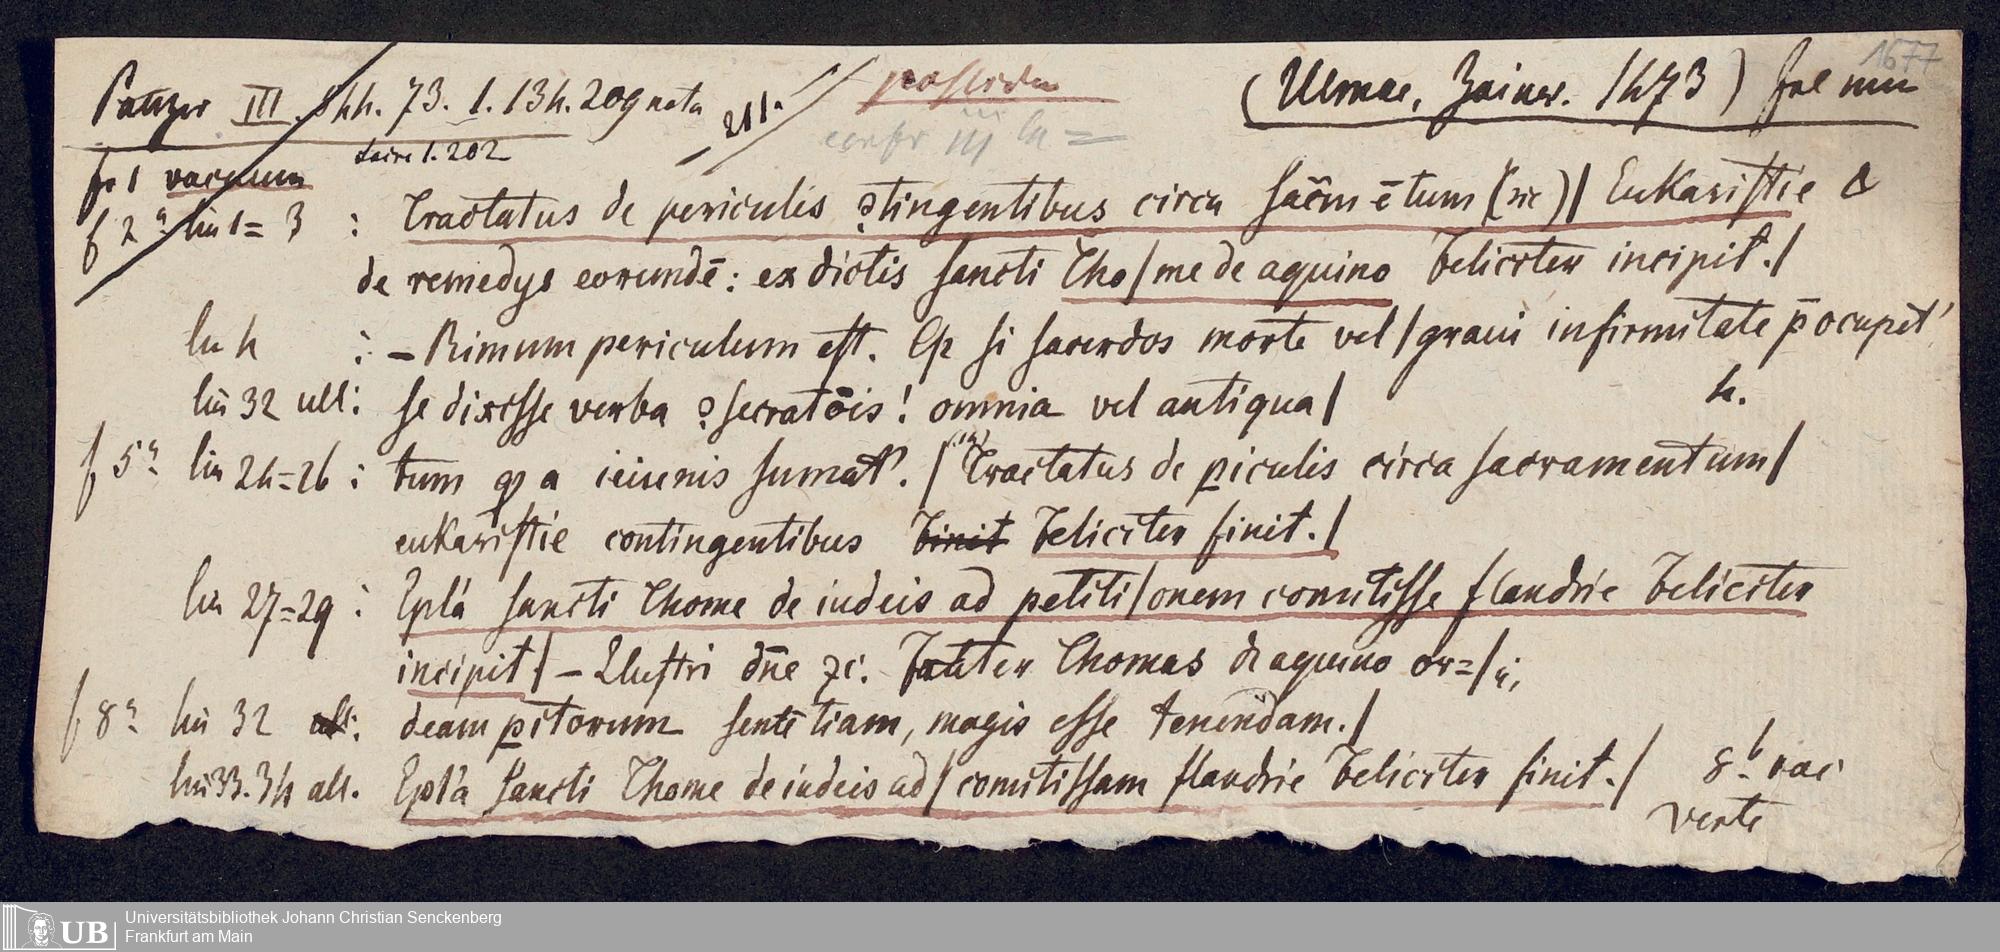 Panzer III. 1hh. 73. 1. 13h. 209 nota 211a possidem (Ulmae, Zainer. 1h73) fol min 1677
Laire 1. 202
confr III h =
f 1 vacuum
f 2a lin 1=3 : Tractatus de periculis ꝯtingentibus circa sac̄mētum (sic)/ Eukaristie &
de remedys eorundē: ex dictis sancti Tho/me de aquino feliciter incipit./
lin h : – Rimum periculum est. Qꝫ si sacerdos morte vel/graui infirmitate p̄ocupet'
lin 32 ult: se dixisse verba ꝯsecratōis! omnia vel antiqua/ h.
f 5a lin 2h=26 : tum qꝫ a ieiunis sumat'. / Tractatus de piculis circa sacramentum/
eukaristie contingentibus feliciter finit./
lin 27=29 : Epl'a sancti Thome de iudeis ad petiti/onem comitisse flandrie feliciter
incipit/ – Llustri dn̄e ꝛc. frater Thomas de aquino or=/i;
f 8a lin 32 : deam pitorum sentētiam, magis esse tenendam./
lin 33. 3h ult. Epl'a sancti Thome de iudeis ad/comitissam flandrie feliciter finit./ 8b vac
verte
UB Universitätsbibliothek Johann Christian Senckenberg
Frankfurt am Main